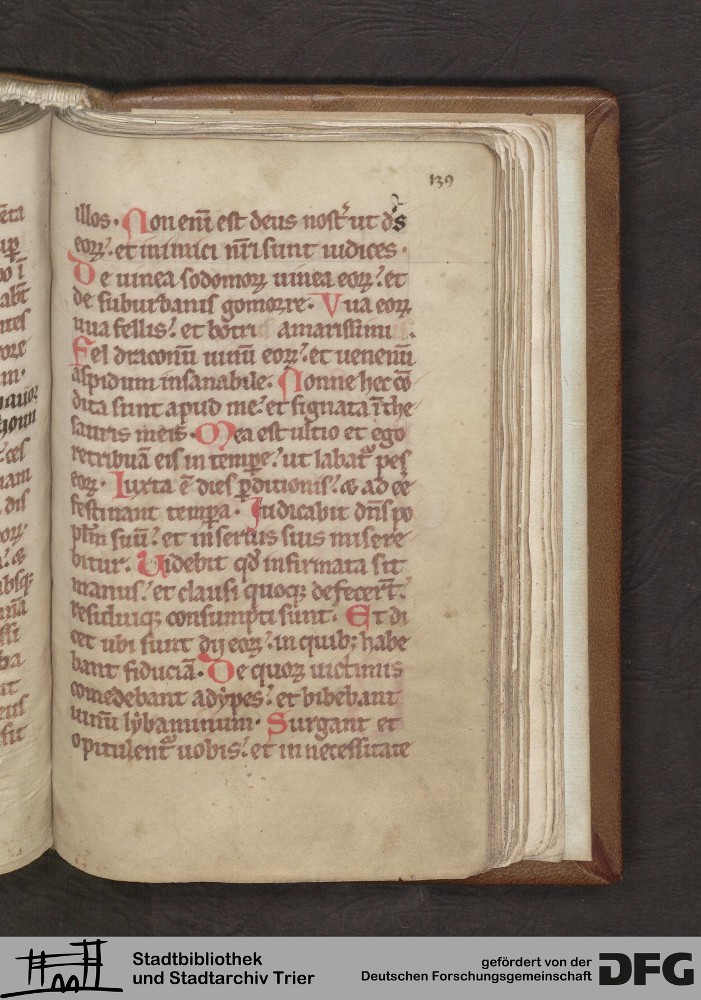 139
illos· Non eni᷒ est deus nostʼ ut ds̄
eoꝝ: et inimici nr̄i sunt iudices·
De uinea sodomoꝝ uinea eoꝝ: et
de suburbanis gomorre· Vua eoꝝ
uua fellis: et botri amarissimi·
Fel draconū uinū eoꝝ: et uenenū
aspidum insanabile· Nonne hec cō
dita sunt apud me: et signata ī the
sauris meis· Mea est ultio et ego
retribuā eis in tempe: ut labat᷑ pes
eoꝝ· Iuxta ē dies ꝑditionis: & adeē
festinant tempa· Iudicabit dn̄s po
pl̄m suū: et in seruis suis misere
bitur· Uidebit qd̄ infirmata sit
manus: et clausi quoqꝫ defecer̄t·
residuiqꝫ consumpti sunt· Et di
cet ubi sunt dij eoꝝ: in quibꝫ habe
bant fiduciā· De quoꝝ uictimis
comedebant adypes: et bibebant
uinū lybaminum· Surgant et
opitulent᷑ uobis: et in necessitate
Stadtbibliothek
und Stadtarchiv Trier
gefördert von der
Deutschen Forschungsgemeinschaft
DFG